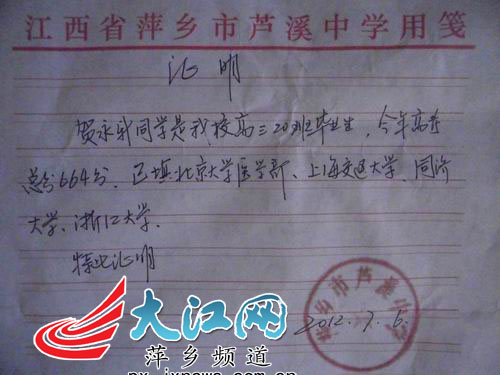 江西省萍乡市芦溪中学用笺
证明
贺永新同学是我校高三20班毕业生，今年高考
总分664分，已填北京大学医学部、上海交通大学、同济
大学、浙江大学。
特此证明
2012.7.6.
乡市芦溪
大江网
萍乡频道